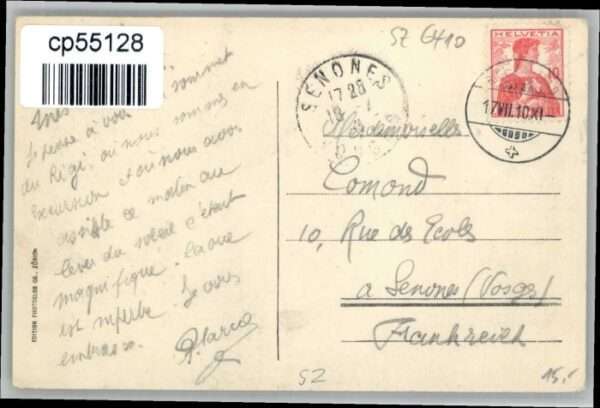 cp55128
SZ
HELVETIA
10
17.VII.10.XI-
SENONES
17 28
Je pense à vous du sommet
du Rigi, où nous sommes en
excursion et où nous avons
assisté ce matin au
lever du soleil c'était
magnifique. La vue
est superbe. Je vous
embrasse.
Mesdemoiselles
Comond
10, Rue des Ecoles
à Senones (Vosges)
Frankreich
EDITION PHOTOGLOB CO., ZÜRICH
SZ
15,-